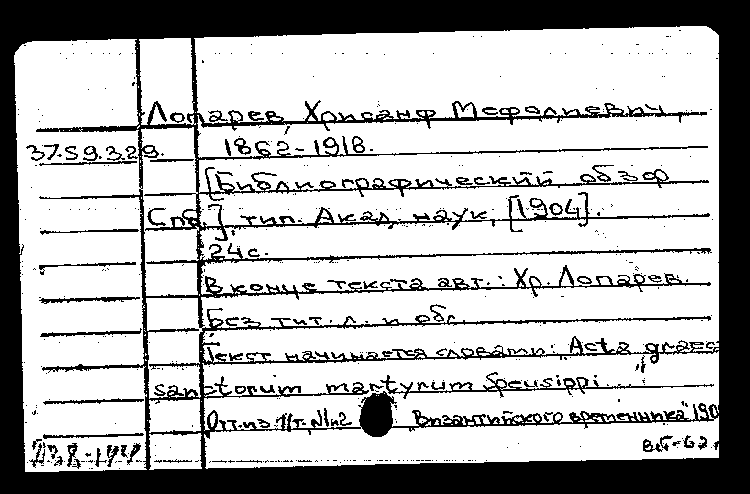 Лопарев, Хрисанф Мефодиевич,
37.59.3.29. 1862-1918.
[Библиографический обзор
Спб.], тип. Акад. наук, [1904].
24 с.
В конце текста авт.: Хр. Лопарев.
Без тит. л. и обл.
Текст начинается словами: „Acta graeca
sanctorum martyrum Speusippi ..."
Отт. из №1-2 „Византийского временника" 190